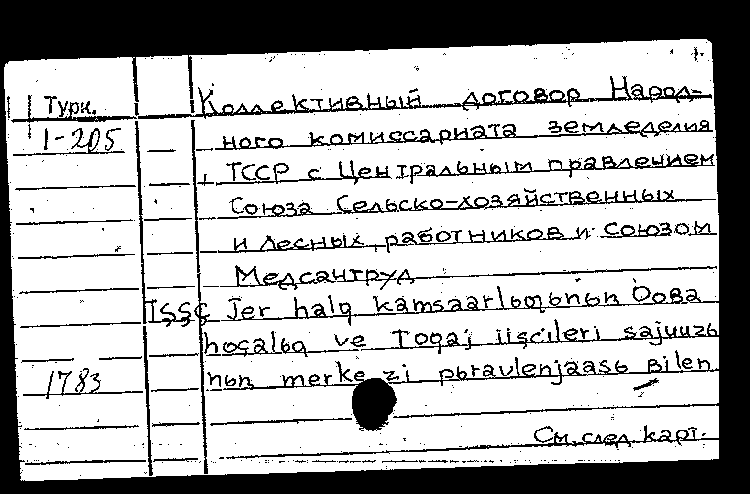 Коллективный договор Народ-
Турк.
1-205
ного комиссариата земледелия
ТССР с Центральным правлением
Союза Сельско-хозяйственных
и лесных работников и союзом
Медсантруд
TSSÇ Jer halq kamsaarlьƣьnьn Ooвa
hoçalьq ve Toqaj iişcileri sajuuzь
nьn merke zi pьravlenjaasь вilen
1783
См. след. карт.